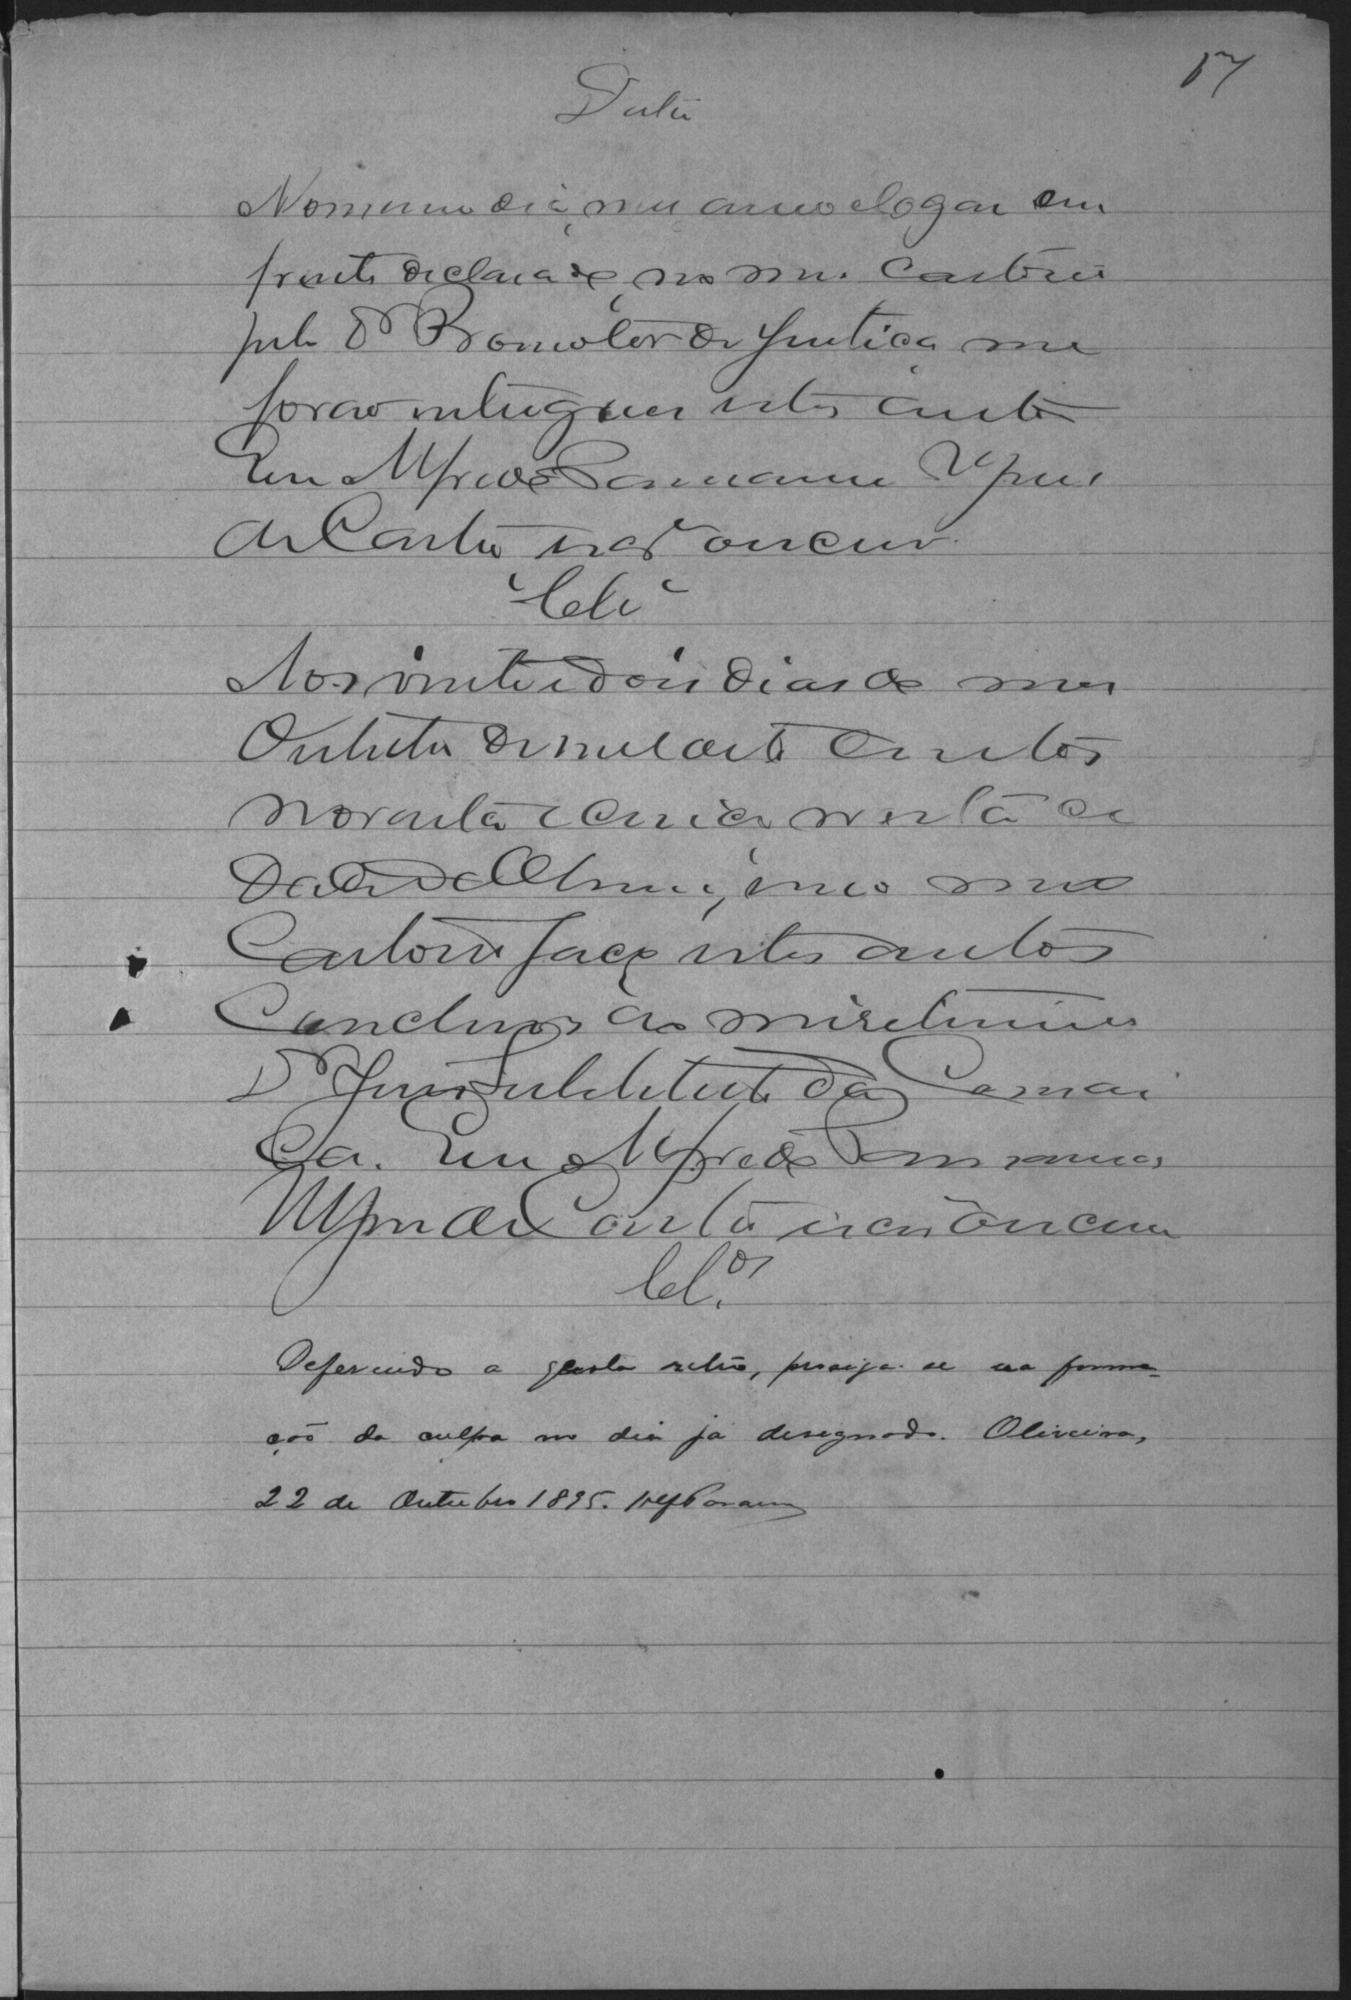 17
Data
No mesmo dia, mez anno e logar em
frente declarado, no meu Cartorio
pelo Dr Promotor de Justiça me
forão entregues estes autos
Eu Alfredo
de Castro escrivão escrevi.
Cls
Aos vinte e dois dias do mez
Outubro de mil oito centos
noventa e cinco nesta ci
dade de Oliveira, em meo
Cartorio faço estes autos
Conclusos ao meretissimo
Dr Juiz Substituto da Comar
ca. Eu Alfredo
de Castro escrivão escrevi
Cl.os
Deferindo a quota retro, prosiga-se na forma-
ção da culpa no dia já designado. Oliveira,
22 de Outubro 1895.